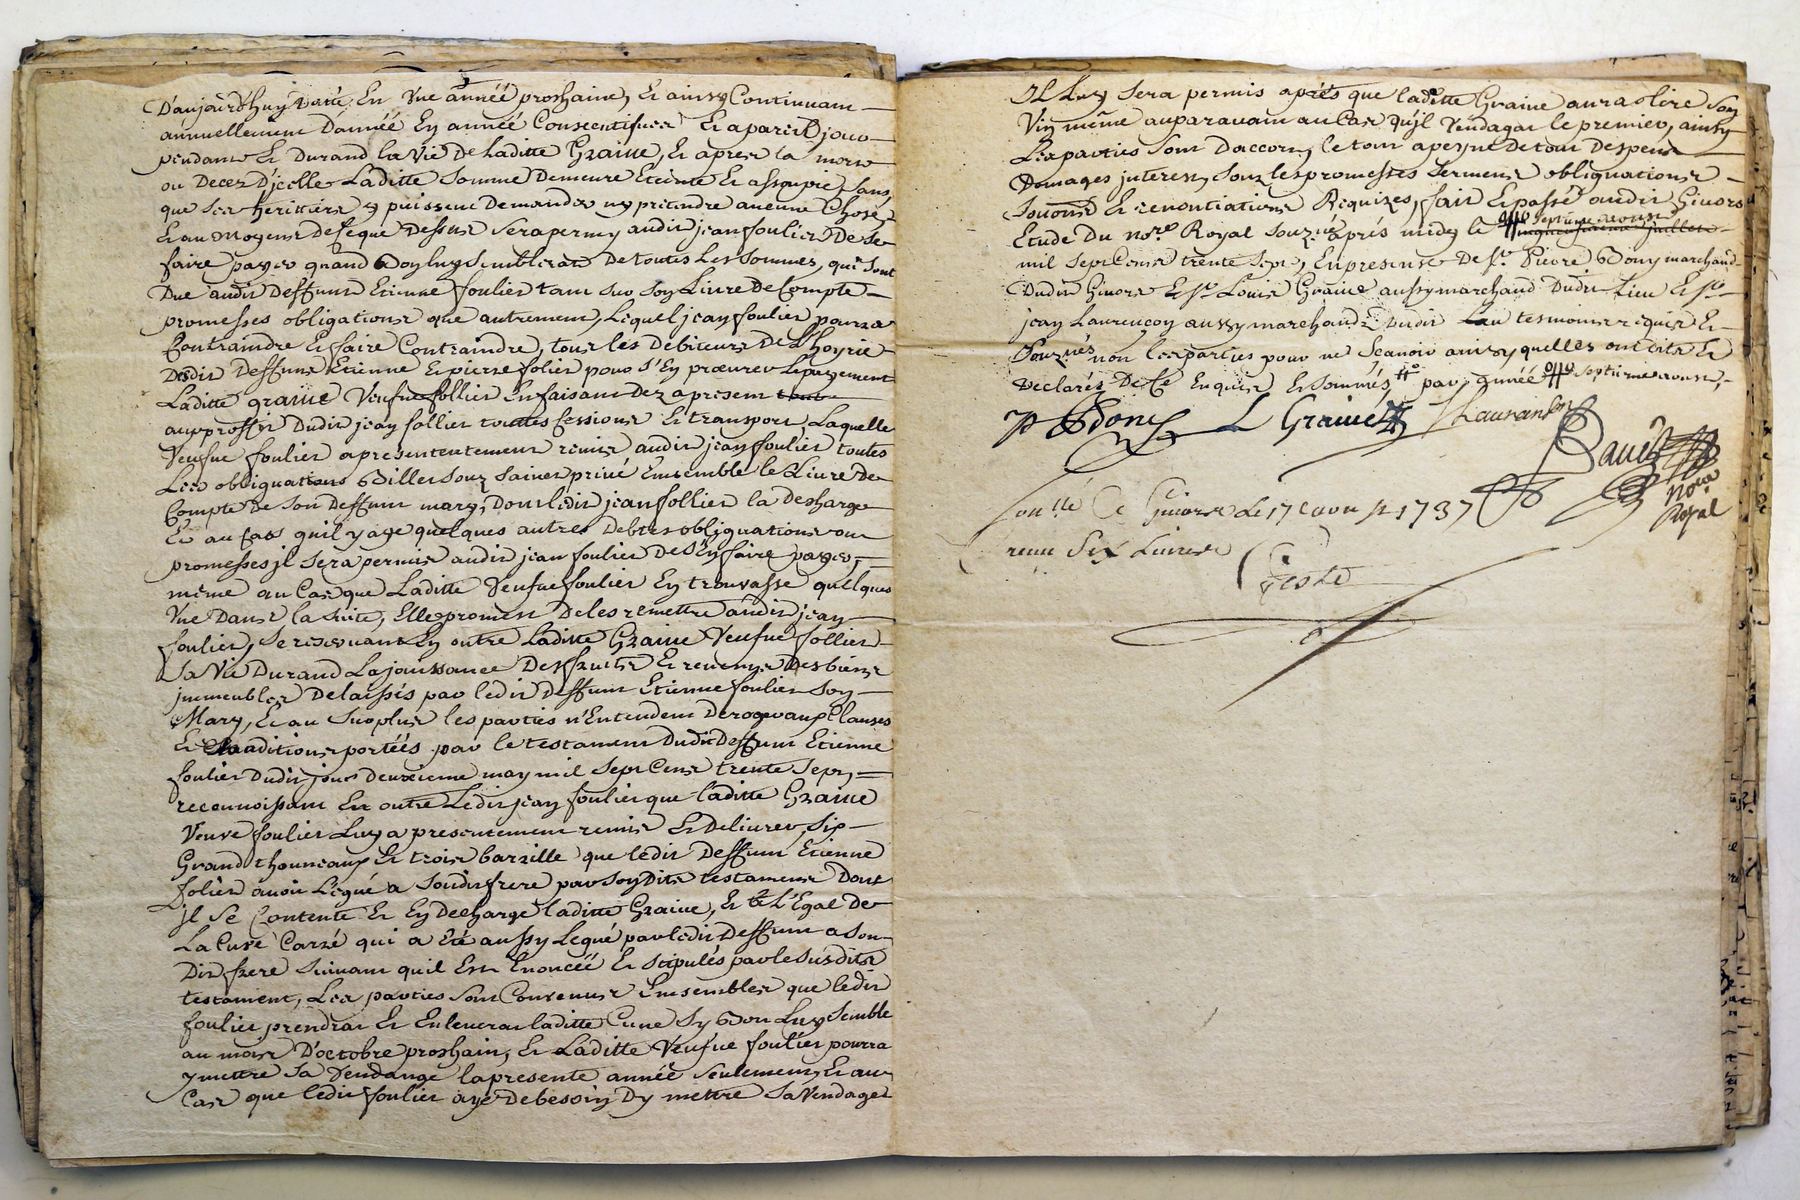 D'aujourd'huy datte En Une année proshaine, Et ainsy Continuam
annuellement D'année En année Consecutifues Et apareil jour
pendant Et Durand la Vie De Laditte Graine, Et apres la mort
ou Decez D'jcelle Laditte Somme Demeure Eteinte Et assoupie Sans
que Ses herittiers y puissent Demander ny pretendre aucune Chose
Et au moyens de Ce que Dessus Sera permy audit jean foulier De Se
faire payer quand Bon luy Semblerat De toutes Les Sommes, qui Sont
Due audit Deffunt Etienne foulier tant sur Son Livre De Compte
promesses obligations que autrement, Lequel jean foulier pourra
Contraindre Et faire Contraindre, tous les Debiteurs De L'hoyrie
Dudit Deffunt Etienne Et pierre folier pour S'En procurer Le payement
Laditte graine Veufue follier En faisant Dez apresent
au proffit Dudit jean follier touttes Cessions Et transport, Laquelle
Veufue foulier apresentement remis audit jean foulier toutes
Les obliguations Billes Souz Saines privé Ensemble le Livre De
Compte De Son Deffunt mary, Dont ledit jean follier la desharge
Et au Cas qu'il y aye quelques autres Debtes obliguations ou
promesses jl Sera permis audit jean foulier De S'En faire payer,
même au Cas que Laditte Veufue foulier En trouvasse quelques
Une Dans la Suite, Elle promest De les remettre audit jean
foulier, Se reservant En outre Laditte Graine Veufue follier
Sa Vie Durand La jouissance Des fruits Et revenus Des biens
jmmeubles Delaissés par ledit Deffunt Etienne foulier Son
Mary, Et au Surplus les parties n'Entendent Deroger aux Clauses
Et Conditions portées par le testament Dudit Deffunt Etienne
foulier Dudit jour Deuxieme may mil Sept Cens trente Sept,
reconnoissant En outre Ledit jean foulier que laditte Graine
Veuve foulier Luy a presentement remis Et Delivrer, Six
Grand thonneaux Et trois barrille que ledit Deffunt Etienne
folier avoit Legué a Soudit frere par Son Dits testament Dont
jl Se Contente Et En Decharge laditte Graine, Et a L'Egal De
La Cuve Carré qui a Eté aussy Legué par ledit Deffunt a Son
Dit frere Suivant qu'il Est Enoncéé Et Stipulés par le Susdits
testament, Les parties Sont Convenus Ensembles que ledit
foulier prendrat Et Enleverat laditte Cuve Sy Bon Luy Semble
au mois D'octobre proshain, Et Laditte Veufue foulier pourra
y mettre Sa Vendange la presente année Seulement, Et au
Cas que ledit foulier aye De besoin Dy mettre Sa Vendages
JL Luy Sera permis aprés que laditte Graine aura tiré Son
Vin même auparavant au Cas qu'jl Vendagat le premier, ainsy
Les parties Sont D'accort, le tout a peyne De tout Despens
Domages jnterest, Souz les promesses Serment obliguations
Et renontiations Requizes, fait Et passé audit Givors
Etude Du nore. Royal Souzné aprés midy le septieme aoust
mil Sept Cens trente Sept, En presense De Sr. Pierre Bony marchand
Dudit Givors Et Sr. Louis Graine aussy marchand Dudit Lieu Et Sr.
jean Laurençon aussy marchand Dudit Lieu tesmoins requis Et
Souznés non les parties pour ne Scavoir ainsy quelles ont dits Et
Declarés De Ce Enquis Et Sommés, par année septieme aoust,
P Bony L Graine Laurenson
Nore
Royal
Conllé a Givors Le 17 aoust 1737
receu Six Livres